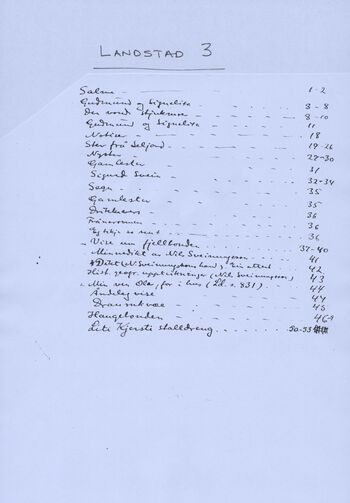 LANDSTAD 3
Salme 1-2
Gudmund og Signelita 3-8
Den vonde stjukmor 8-10
Gudmund og Signelita 11
Notice 18
Stev frå Seljord 19-26
Nystev 27-30
Gamlestev 31
Sigurd Svein 32-34
Segn 35
Gamlestev 35
Drikkevers 36
36
36
Vise um fjellbonden 37-40
Minnedikt av Nils Sveinungsson 41
42
Hist. geogr. uppteikningar (Nils Sveinungsson) 43
Min ven Ola, for i hus (Ld. s. 831) 44
Åndeleg vise 44
Draumkvæe 45
Haugebonden 46-9
Liti Kjersti stalldreng 50-53